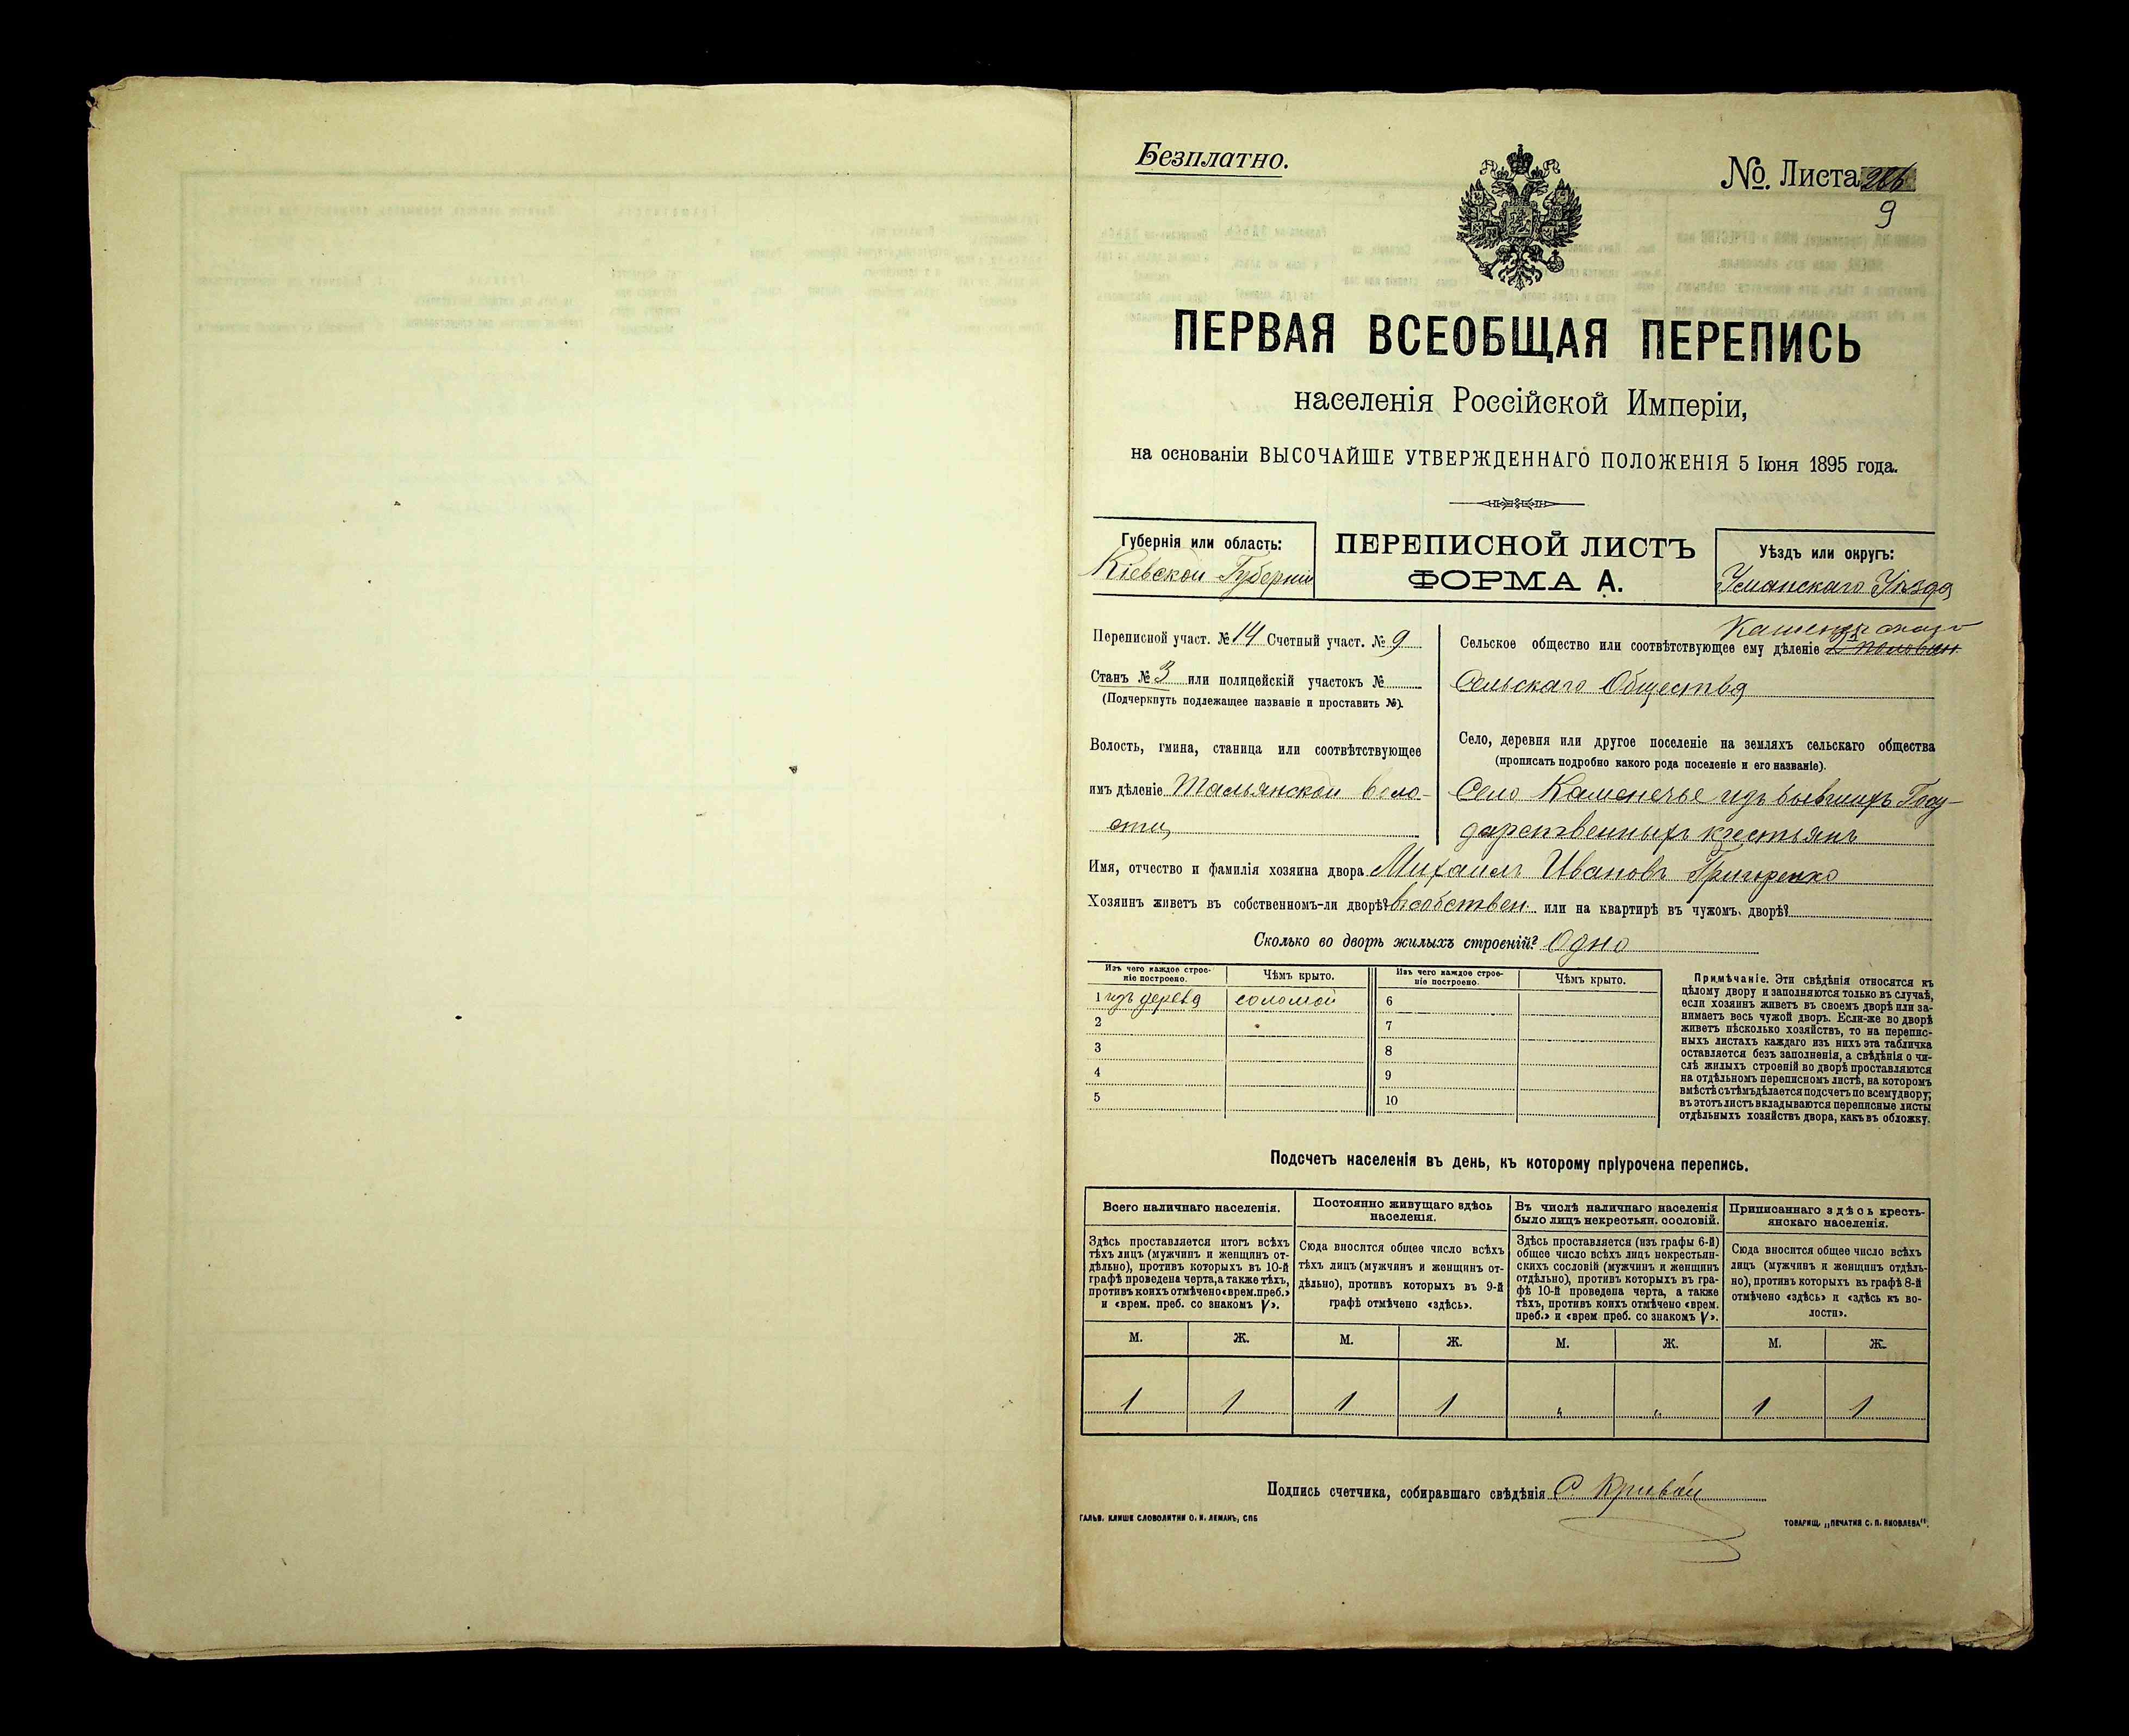 Безплатно.
No. Листа
9
ПЕРВАЯ ВСЕОБЩАЯ ПЕРЕПИСЬ
населенія Россійской Имперіи,
на основаніи ВЫСОЧАЙШЕ УТВЕРЖДЕННАГО ПОЛОЖЕНІЯ 5 Іюня 1895 года.
Губернія или область:
Кіевской Губерніи
ПЕРЕПИСНОЙ ЛИСТЪ
ФОРМА А.
Уѣздъ или округъ:
Уманскаго Уѣзда
Переписной участ. № 14 Счетный участ. № 9
Станъ № 3 или полицейскій участокъ №
(Подчеркнуть подлежащее названіе и проставить №).
Волость, гмина, станица или соотвѣтствующее
имъ дѣленіе Тальянской воло-
сти
Сельское общество или соотвѣтствующее ему дѣленіе
Сельскаго Общества
Село, деревня или другое поселеніе на земляхъ сельскаго общества
(прописать подробно какого рода поселеніе и его названіе).
Село Каменечье изъ бывшихъ Госу-
дарственныхъ крестьянъ
Имя, отчество и фамилія хозяина двора Михаилъ Ивановъ Григоренко
Хозяинъ живетъ въ собственномъ-ли дворѣ? въ собствен. или на квартирѣ въ чужомъ дворѣ?
Сколько во дворѣ жилыхъ строеній? Одно
Изъ чего каждое строе-
ніе построено.
Чѣмъ крыто.
Изъ чего каждое строе-
ніе построено.
Чѣмъ крыто.
1 изъ дерева соломой 6
2 7
3 8
4 9
5 10
Примѣчаніе. Эти свѣдѣнія относятся къ
цѣлому двору и заполняются только въ случаѣ,
если хозяинъ живетъ въ своемъ дворѣ или за-
нимаетъ весь чужой дворъ. Если-же во дворѣ
живетъ нѣсколько хозяйствъ, то на перепис-
ныхъ листахъ каждаго изъ нихъ эта табличка
оставляется безъ заполненія, а свѣдѣнія о чи-
слѣ жилыхъ строеній во дворѣ проставляются
на отдѣльномъ переписномъ листѣ, на которомъ
вмѣстѣ съ тѣмъ дѣлается подсчетъ по всему двору;
въ этотъ листъ вкладываются переписные листы
отдѣльныхъ хозяйствъ двора, какъ въ обложку.
Подсчетъ населенія въ день, къ которому пріурочена перепись.
Всего наличнаго населенія.
Здѣсь проставляется итогъ всѣхъ
тѣхъ лицъ (мужчинъ и женщинъ от-
дѣльно), противъ которыхъ въ 10-й
графѣ проведена черта, а также тѣхъ,
противъ коихъ отмѣчено «врем. преб.»
и «врем. преб. со знакомъ V».
М. Ж.
1 1
Постоянно живущаго здѣсь
населенія.
Сюда вносится общее число всѣхъ
тѣхъ лицъ (мужчинъ и женщинъ от-
дѣльно), противъ которыхъ въ 9-й
графѣ отмѣчено «здѣсь».
М. Ж.
1 1
Въ числѣ наличнаго населенія
было лицъ некрестьян. сословій.
Здѣсь проставляется (изъ графы 6-й)
общее число всѣхъ лицъ некрестьян-
скихъ сословій (мужчинъ и женщинъ
отдѣльно), противъ которыхъ въ гра-
фѣ 10-й проведена черта, а также
тѣхъ, противъ коихъ отмѣчено «врем.
преб.» и «врем преб. со знакомъ V».
М. Ж.
„ „
Приписаннаго здѣсь кресть-
янскаго населенія.
Сюда вносится общее число всѣхъ
лицъ (мужчинъ и женщинъ отдѣль-
но), противъ которыхъ въ графѣ 8-й
отмѣчено «здѣсь» и «здѣсь къ во-
лости».
М. Ж.
1 1
Подпись счетчика, собиравшаго свѣдѣнія С. Кривой
ГАЛЬВ. КЛИШЕ СЛОВОЛИТНИ О. И. ЛЕМАНЪ, СПБ
ТОВАРИЩ. „ПЕЧАТНЯ С. П. ЯКОВЛЕВА".